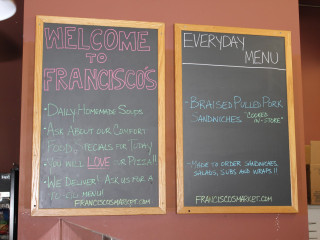 WELCOME
TO
FRANCISCO'S
• DAILY HOMEMADE SOUPS
• ASK ABOUT OUR COMFORT
FOOD SPECIALS FOR TODAY
• YOU WILL LOVE OUR PIZZA!!
• WE DELIVER! ASK US FOR A
TO-GO MENU!
FRANCISCOSMARKET.COM
EVERYDAY
MENU
• BRAISED PULLED PORK
SANDWICHES "COOKED
IN-STORE"
• MADE TO ORDER SANDWICHES,
SALADS, SUBS AND WRAPS!!
FRANCISCOSMARKET.COM